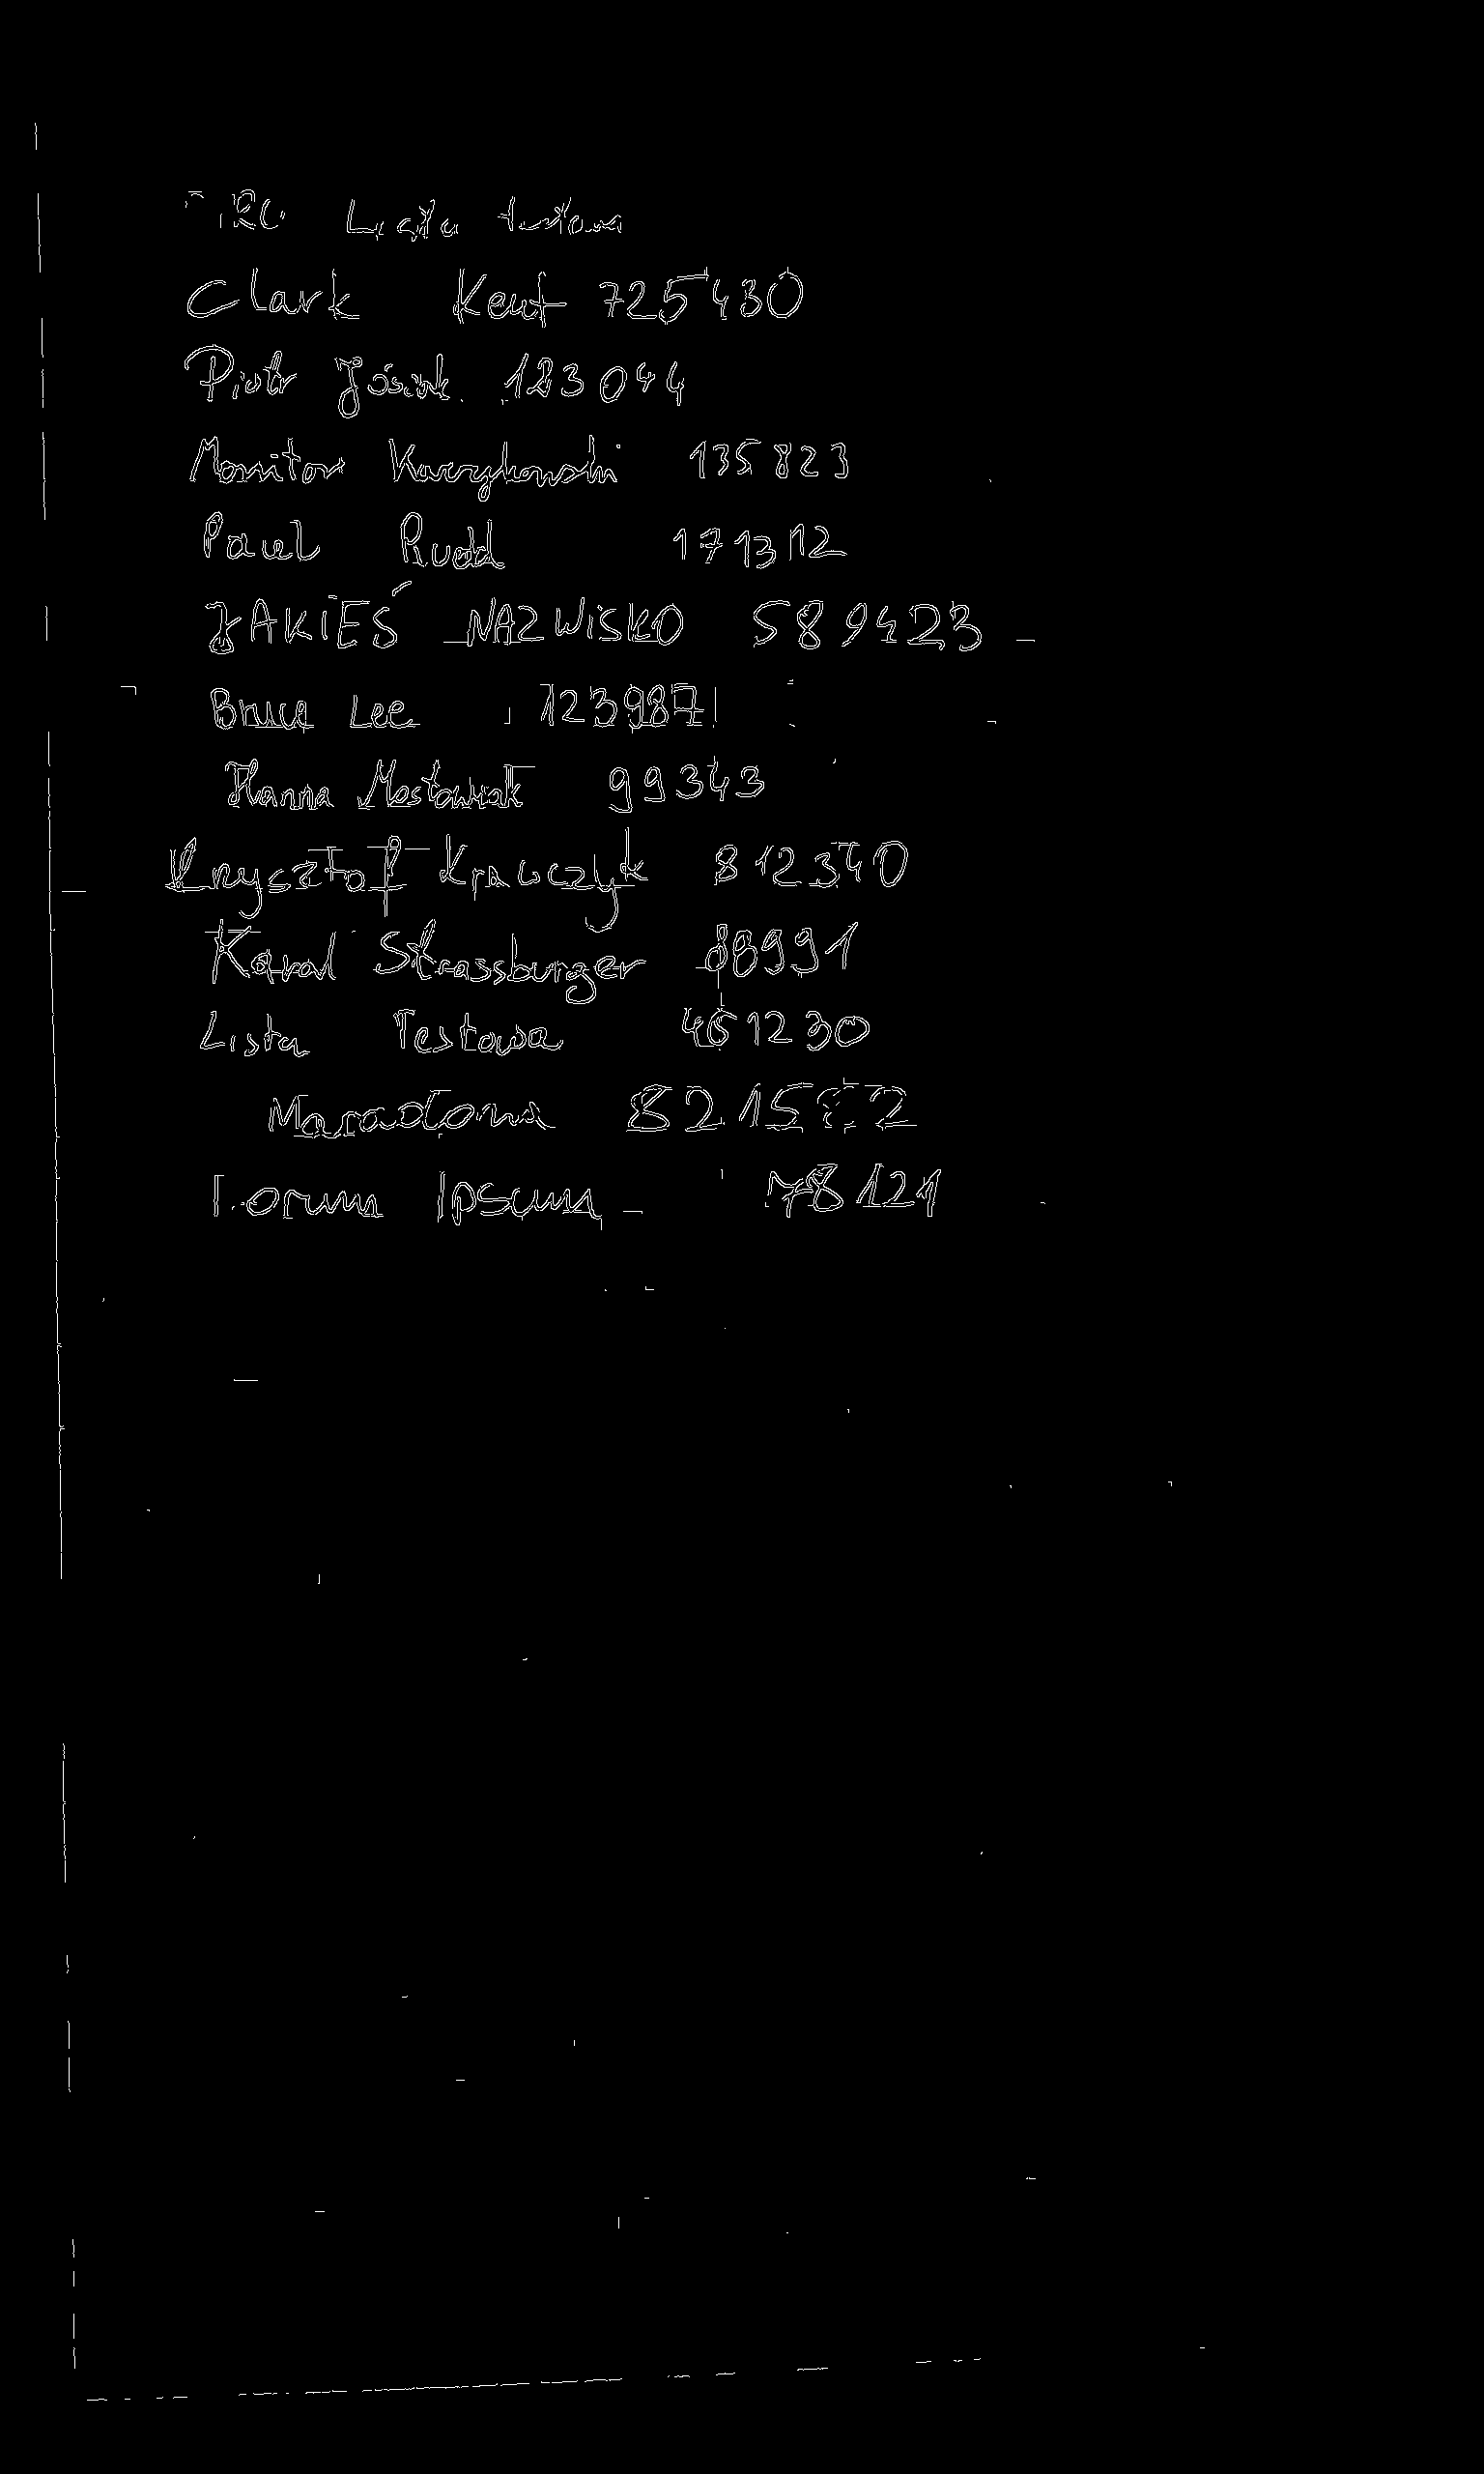 Lista testowa
Clark Kent 725430
Piotr Jósiak 123044
Monitor Kurzykowski 135823
Paul Rudd 171312
JAKIEŚ NAZWISKO 589423
Bruce Lee 123987
Hanna Mostowiak 99343
Krysztof Krawczyk 812340
Karol Strassburger 88991
Lista Testowa 451230
Maradona
Lorum Ipsum 78121